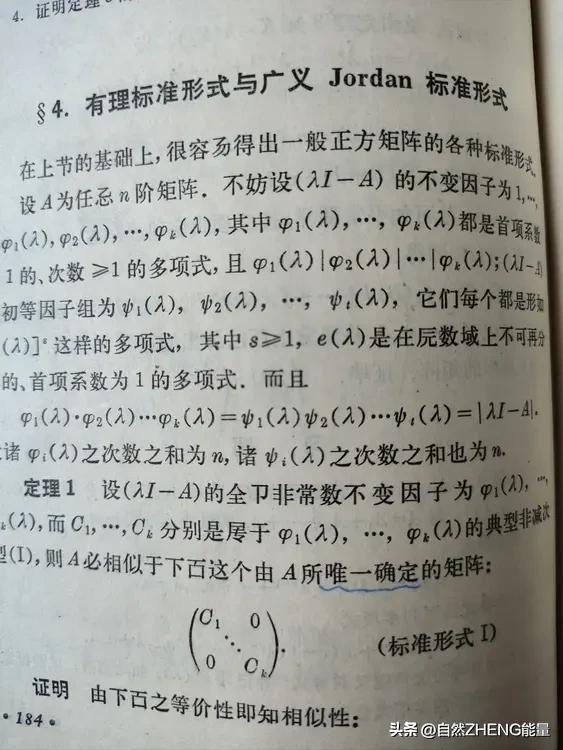 4. 证明定理
§4. 有理标准形式与广义 Jordan 标准形式
在上节的基础上，很容易得出一般正方矩阵的各种标准形式.
设A为任意n阶矩阵. 不妨设(λI-A)的不变因子为1,…,
φ₁(λ),φ₂(λ),…,φₖ(λ),其中φ₁(λ),…,φₖ(λ)都是首项系数
1的、次数≥1的多项式,且φ₁(λ)|φ₂(λ)|…|φₖ(λ);(λI-A)
初等因子组为ψ₁(λ), ψ₂(λ), …, ψₜ(λ), 它们每个都是形如
(λ)]ˢ这样的多项式, 其中s≥1, e(λ)是在原数域上不可再分
的、首项系数为1的多项式. 而且
φ₁(λ)·φ₂(λ)…φₖ(λ)=ψ₁(λ)ψ₂(λ)…ψₜ(λ)=|λI-A|.
诸φᵢ(λ)之次数之和为n,诸ψᵢ(λ)之次数之和也为n.
定理1 设(λI-A)的全部非常数不变因子为φ₁(λ),…,
ₖ(λ),而C₁,…,Cₖ分别是属于φ₁(λ),…,φₖ(λ)的典型非减次
型(I),则A必相似于下面这个由A所唯一确定的矩阵:
C₁ 0
⋱
0 Cₖ . (标准形式I)
证明 由下面之等价性即知相似性:
·184·
头条@自然ZHENG能量